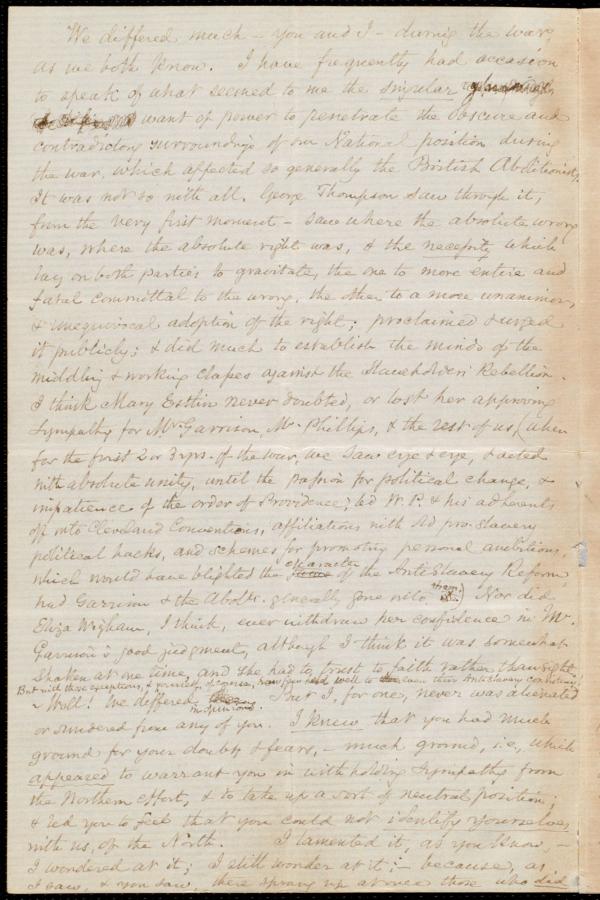 We differed much - you and I - during the war,
as we both know. I have frequently had occasion
to speak of what seemed to me the singular
want of power to penetrate the obscure and
contradictory surroundings of our National position during
the war, which affected so generally the British Abolitionists.
It was not so with all. George Thompson saw through it,
from the very first moment - saw where the absolute wrong
was, where the absolute right was, & the necessity which
lay on both parties to gravitate, the one to more entire and
fatal committal to the wrong, the other to a more unanimous,
& unequivocal adoption of the right; proclaimed & urged
it publicly; & did much to establish the minds of the
middling & working classes against the Slaveholders' Rebellion.
I think Mary Estlin never doubted, or lost her approving
sympathy for Mr Garrison, Mr Phillips, & the rest of us, (when
for the first 2 or 3 yrs. of the war, we saw eye & eye, & acted
with absolute unity, until the passion for political change, &
impatience of the order of Providence, led W. P. & his adherents
off into Cleveland Conventions, affiliations with old pro-slavery
political hacks, and schemes for promoting personal ambitions,
character
which would have blighted the of the AntiSlavery Reform,
had Garrison & the Abolts. generally gone into them.) Nor did
Eliza Wigham, I think, ever withdraw her confidence in Mr.
Garrison's good judgment, although I think it was somewhat
shaken at one time, and she had to trust to faith rather than sight.
But with these exceptions, held well to even their AntiSlavery
- Well! We differed But I, for one, never was alienated
or sundered from any of you. I knew that you had much
ground for your doubts & fears, - much ground, i.e., which
appeared to warrant you in withholding sympathy from
the Northern effort, & to take up a sort of neutral position;
& led you to feel that you could not identify yourselves
with us, of the North. I lamented it, as you know, -
I wondered at it; I still wonder at it; - because, as
I saw, & you saw, there sprang up at once those who did